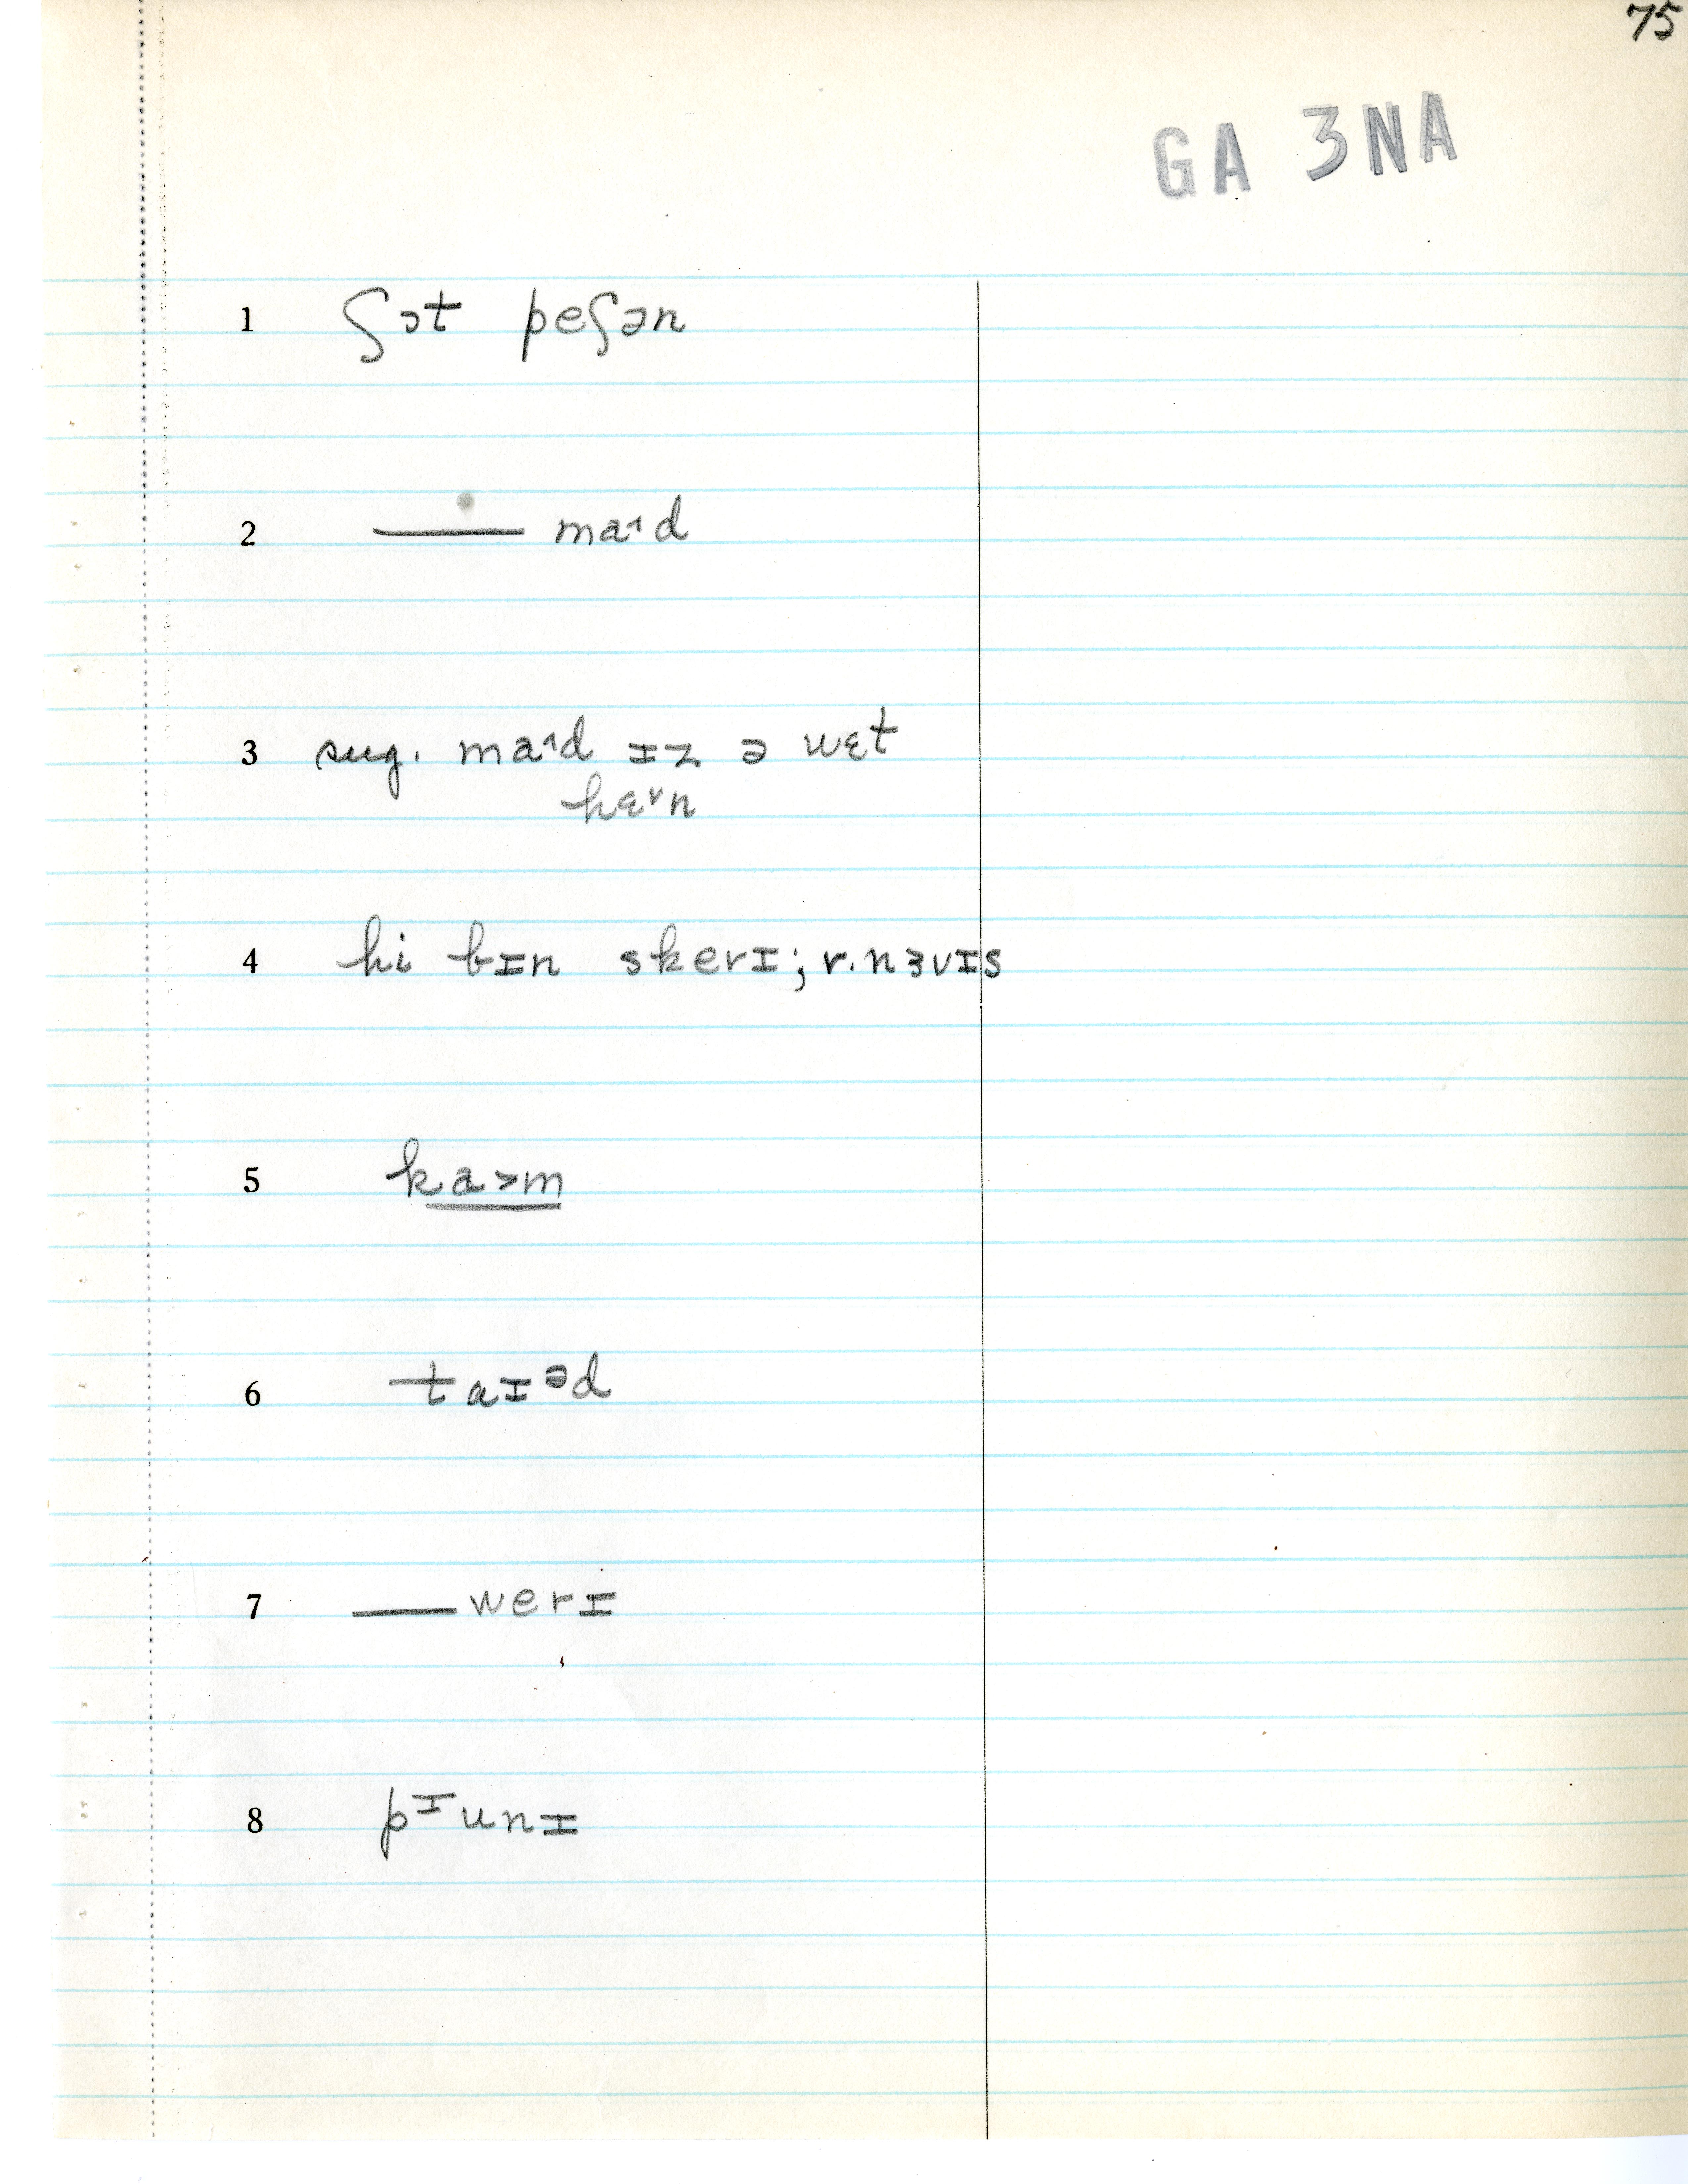 75
GA 3NA
1 ʃɔt peʃən
2 —— ma˔d
3 sug. ma˔d ɪz ə wɛt
hɛ˅n
4 hi bɪn skerɪ; r. nɜvɪs
5 ka˃m
6 taɪᵊd
7 —— werɪ
8 pᶦunɪ